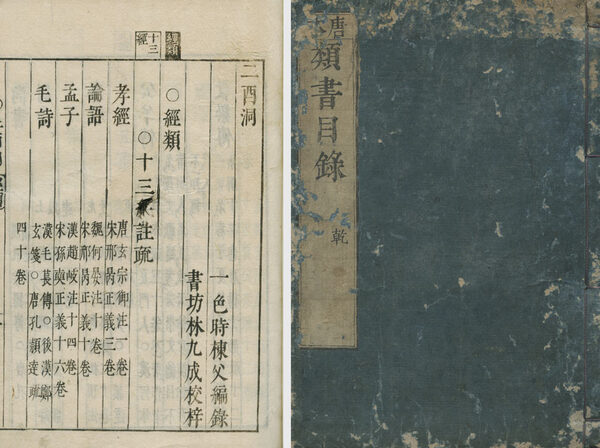 經類
十三經
二酉洞
一色時棟父編錄
書坊林九成校梓
○經類
○十三經註疏
孝經
唐玄宗御注一卷
宋邢昺正義三卷
論語
魏何晏注十卷
宋邢昺正義十卷
孟子
漢趙岐注十四卷
宋孫奭正義十六卷
毛詩
漢毛萇傳○後漢鄭
玄箋○唐孔穎達疏
四十卷
唐本
類書目錄
乾